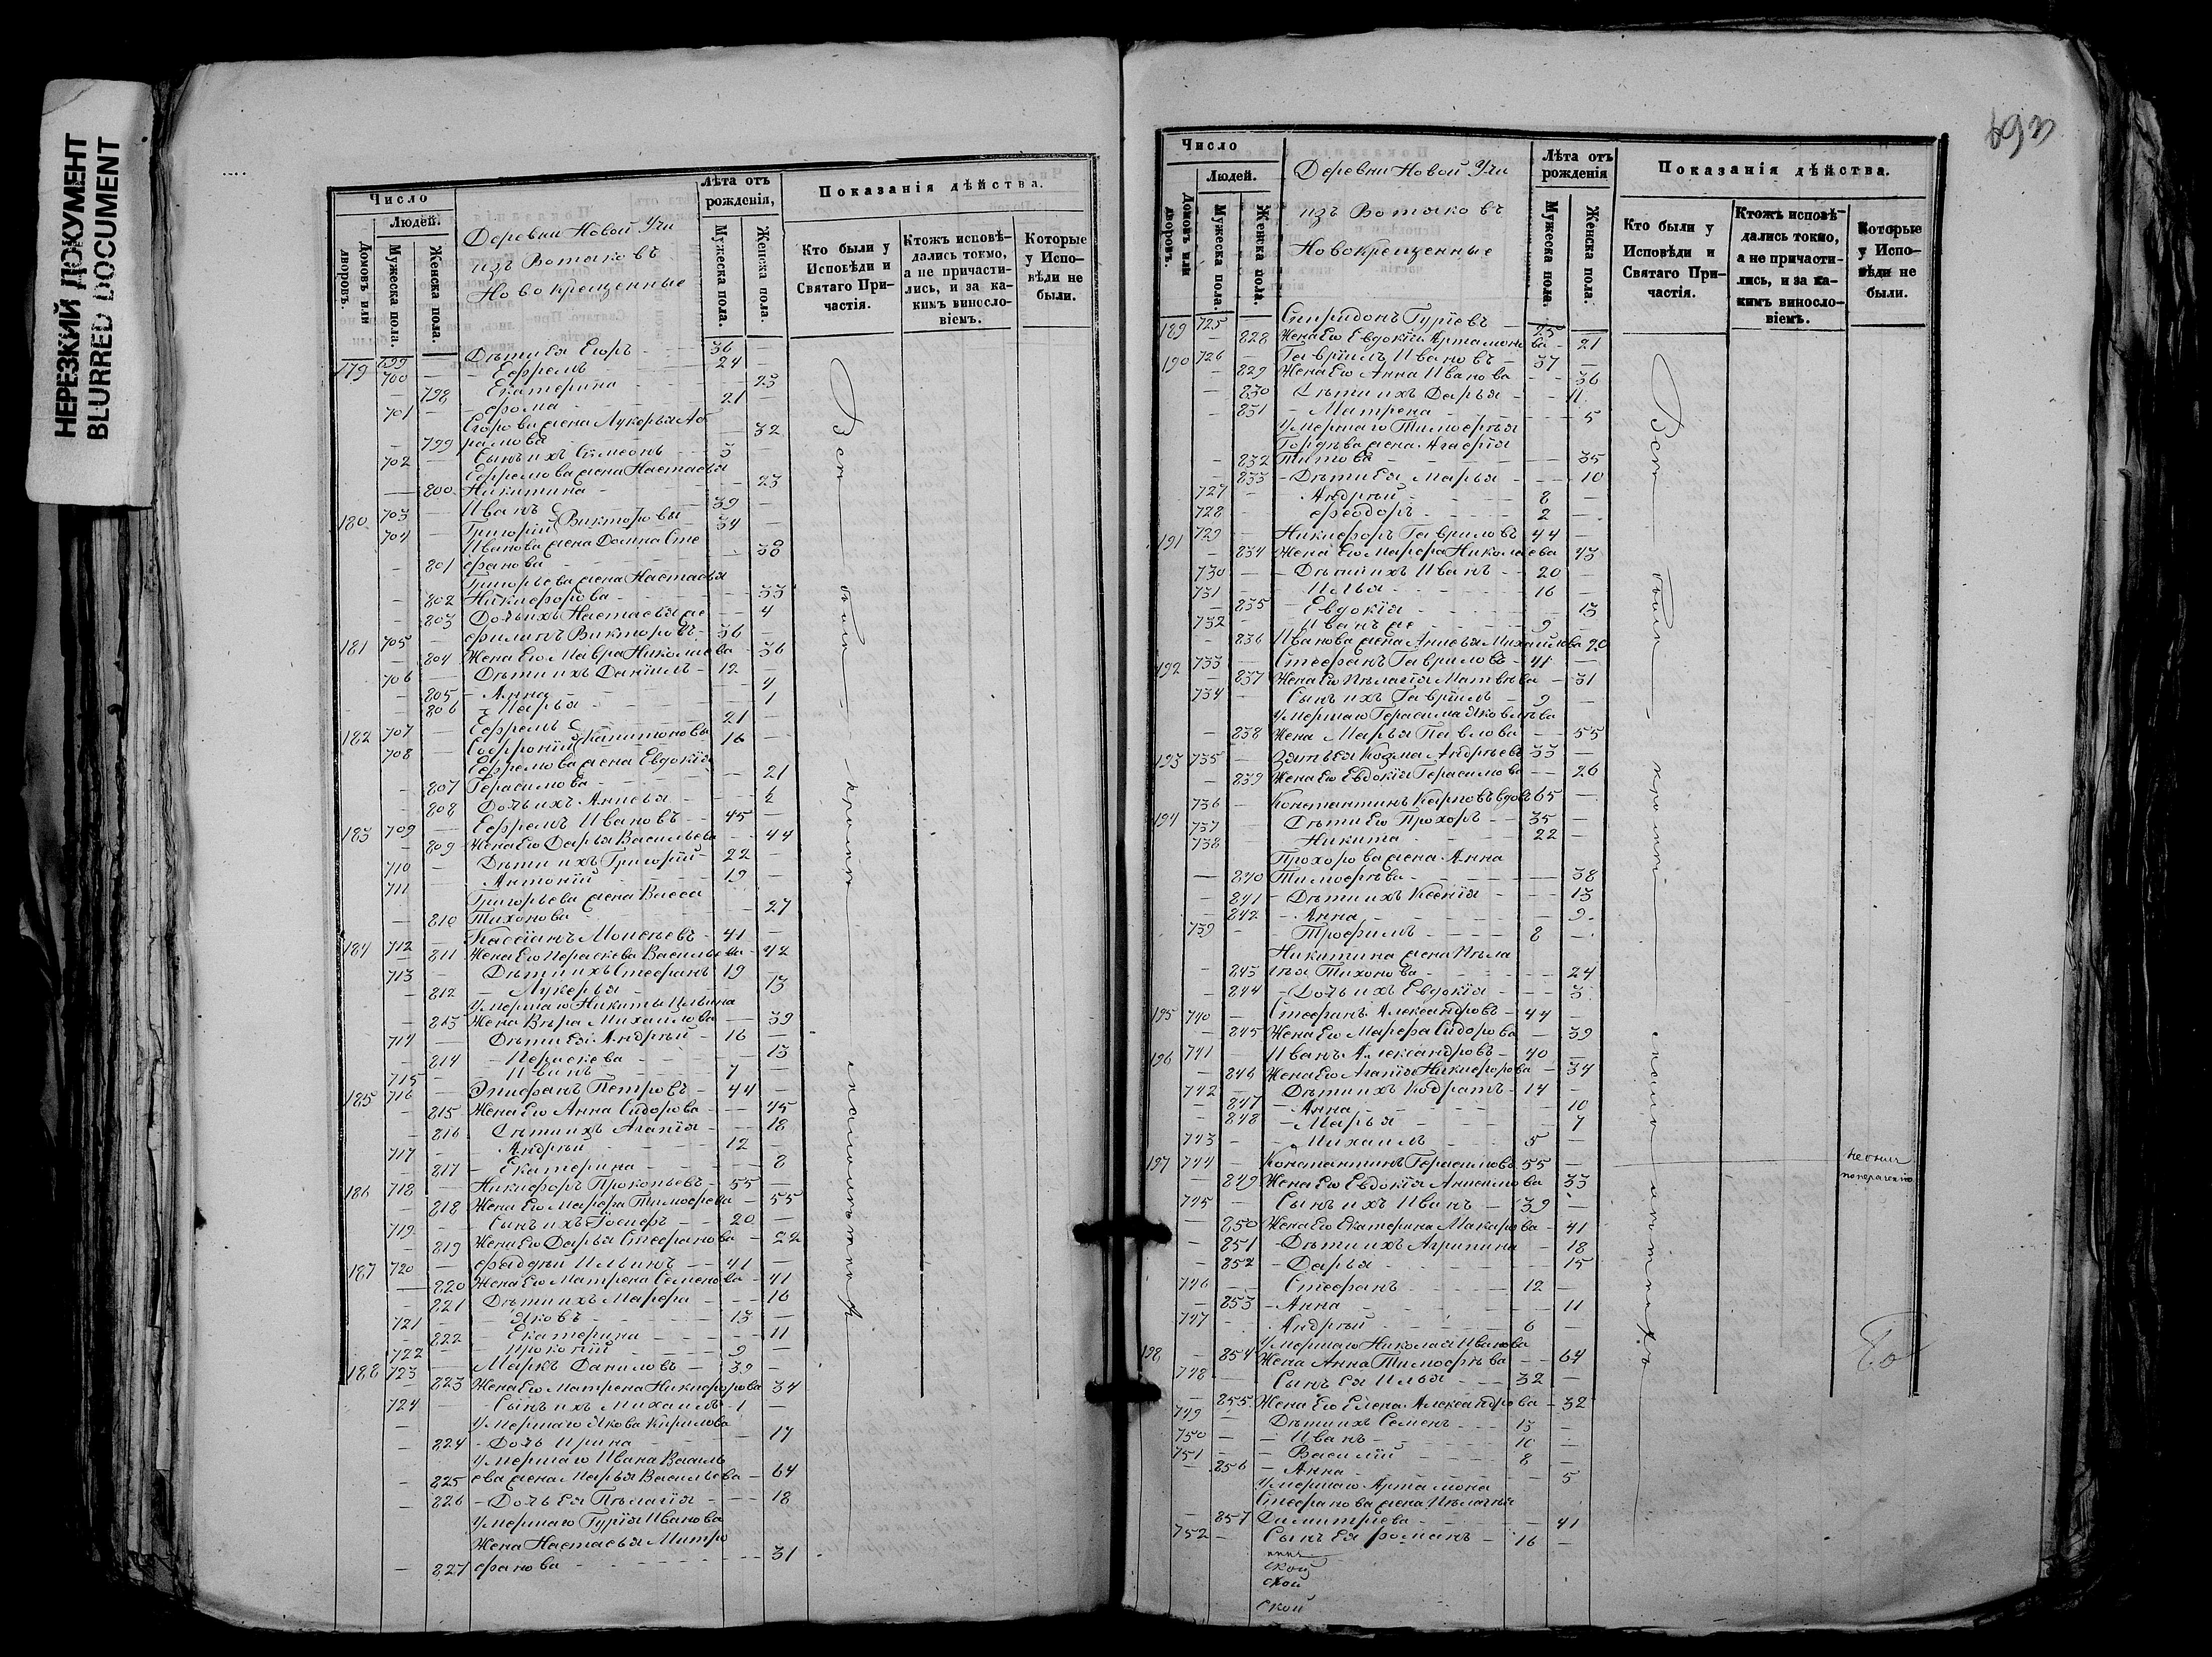 НЕРЕЗКИЙ ДОКУМЕНТ
BLURRED DOCUMENT
Число
Людей.
Домовъ или дворовъ.
Мужеска пола.
Женска пола.
Деревни Новой Учи
изъ Вотяковъ
Новокрещенные
Лѣта отъ рожденія,
Мужеска пола.
Женска пола.
Показанія дѣйства.
Кто были у Исповѣди и Святаго Причастія.
Ктожъ исповѣдались токмо, а не причастились, и за какимъ винословіемъ.
Которые у Исповѣди не были.
179 699 — Дѣти Ея Егоръ 36 —
700 — Ефремъ 24 —
— 798 Екатерина — 23
701 — Фома 21 —
Егорова жена Лукерья Аб
— 799 рамова — 32
702 — Сынъ ихъ Симеонъ 3 —
Ефремова жена Настасья
— 800 Никитина — 23
180 703 — Иванъ 39 —
704 — Григорій Викторовы 34 —
Иванова жена Домна Сте
— 801 фанова — 38
Григорьева жена Настасья
— 802 Никифорова — 33
— 803 Дочь ихъ Настасья же — 4
181 705 — Филипъ Викторовъ 36 —
— 804 Жена Его Мавра Николаева — 36
706 — Дѣти ихъ Даніилъ 12 —
— 805 Анна — 4
— 806 Марья — 1
182 707 — Ефремъ 21 —
708 — Софроній Капитоновы 16 —
Ефремова жена Евдокія
— 807 Герасимова — 21
— 808 Дочь ихъ Анисья
183 709 — Ефремъ Ивановъ 45 —
— 809 Жена Его Дарья Васильева — 44
710 — Дѣти ихъ Григорій 22 —
711 — Антоній 19 —
Григорьева жена Васса
— 810 Тихонова — 27
184 712 — Кассіанъ Моисѣевъ 41 —
— 811 Жена Его Параскева Васильева — 42
713 — Дѣти ихъ Стефанъ 19 —
— 812 Лукерья — 13
Умершаго Никиты Ильина
— 813 Жена Вѣра Михаилова — 39
714 — Дѣти Ея Андрѣй 16 —
— 814 Параскева — 13
715 — Иванъ 7 —
185 716 — Эпифанъ Петровъ 44 —
— 815 Жена Его Анна Сидорова — 45
— 816 Дѣти ихъ Агапія — 18
717 — Андрѣй 12 —
— 817 Екатерина — 8
186 718 — Никифоръ Прокопьевъ 55 —
— 818 Жена Его Марфа Тимофеева — 55
719 — Сынъ ихъ Іосифъ 20 —
— 819 Жена Его Дарья Стефанова — 22
187 720 — Фаддѣй Ильинъ 41 —
— 820 Жена Его Матрена Семенова — 41
— 821 Дѣти ихъ Марфа — 16
721 — Яковъ 13 —
— 822 Екатерина — 11
722 — Прокопій 9 —
188 723 — Маркъ Даниловъ 39 —
— 823 Жена Его Матрена Никифорова 34
724 — Сынъ ихъ Михаилъ 1 —
Умершаго Якова Кирилова
— 824 Дочь Ирина — 17
Умершаго Ивана Василь
— 825 ева жена Марья Васильева — 64
— 826 Дочь Ея Пелагія — 18
Умершаго Гурія Иванова
Жена Настасья Митро
— 827 фанова — 31
Всѣ — были — кромѣ —
Число
Людей.
Домовъ или дворовъ.
Мужеска пола.
Женска пола.
Деревни Новой Учи
изъ Вотяковъ
Новокрещенные
Лѣта отъ рожденія
Мужеска пола.
Женска пола.
Показанія дѣйства.
Кто были у Исповѣди и Святаго Причастія.
Ктожъ исповѣдались токмо, а не причастились, и за какимъ винословіемъ.
Которые у Исповѣди не были.
189 725 Спиридонъ Гуріевъ 25
— 828 Жена Его Евдокія Артамонова — 21
190 726 — Гавріилъ Ивановъ 37 —
— 829 Жена Его Анна Иванова — 36
— 830 Дѣти ихъ Дарья — 11
— 831 Матрена — 5
Умершаго Тимофея
Гордѣева жена Агафія
— 832 Титова — 35
— 833 Дѣти Ея Марья — 10
727 — Андрѣй 8 —
728 — Феодоръ 2 —
191 729 — Никифоръ Гавриловъ 44 —
— 834 Жена Его Марфа Николаева 43
730 — Дѣти ихъ Иванъ 20 —
731 — Илья 16 —
— 835 Евдокія — 13
732 — Иванъ же 9 —
— 836 Иванова жена Анисья Михайлова 20
192 733 — Стефанъ Гавриловъ 41 —
— 837 Жена Его Пелагія Матвѣева — 31
734 — Сынъ ихъ Гавріилъ 9 —
Умершаго Герасима Яковлева
— 838 Жена Марья Павлова — 55
193 735 — Зять Ея Козма Андрѣевъ 33 —
— 839 Жена Его Евдокія Герасимова — 26
736 — Константинъ Карповъ вдовъ 65 —
194 737 — Дѣти Его Прохоръ 35 —
738 — Никита 22 —
Прохорова жена Анна
— 840 Тимофѣева — 38
— 841 Дѣти ихъ Ксенія — 13
— 842 Анна — 9
739 — Трофимъ 8 —
Никитина жена Пела
— 843 гея Тихонова — 24
— 844 Дочь ихъ Евдокія — 3
195 740 — Стефанъ Александровъ 44 —
— 845 Жена Его Марфа Сидорова — 39
196 741 — Иванъ Александровъ 40 —
— 846 Жена Его Агапія Никифорова — 34
742 — Дѣти ихъ Кодратъ 14 —
— 847 Анна — 10
— 848 Марья — 7
743 — Михаилъ 5 —
197 744 — Константинъ Герасимовъ 55 —
— 849 Жена Его Евдокія Анисимова 33
745 — Сынъ ихъ Иванъ 39 —
— 850 Жена Его Екатерина Макарова — 41
— 851 Дѣти ихъ Агрипина — 18
— 852 Дарья — 15
746 — Стефанъ 12 —
— 853 Анна — 11
747 — Андрѣй 6 —
Умершаго Николая Иванова
198 — 854 Жена Анна Тимофѣева — 64
748 — Сынъ Ея Илья 32 —
— 855 Жена Его Елена Александрова — 32
749 — Дѣти ихъ Семенъ 13 —
750 — Иванъ 10 —
751 — Василій 8 —
— 856 Анна — 5
Умершаго Артамона
Стефанова жена Пелагея
— 857 Димитріева — 41
752 — Сынъ Ея Романъ 16 —
ской
ской
ской
Всѣ — были — кромѣ —